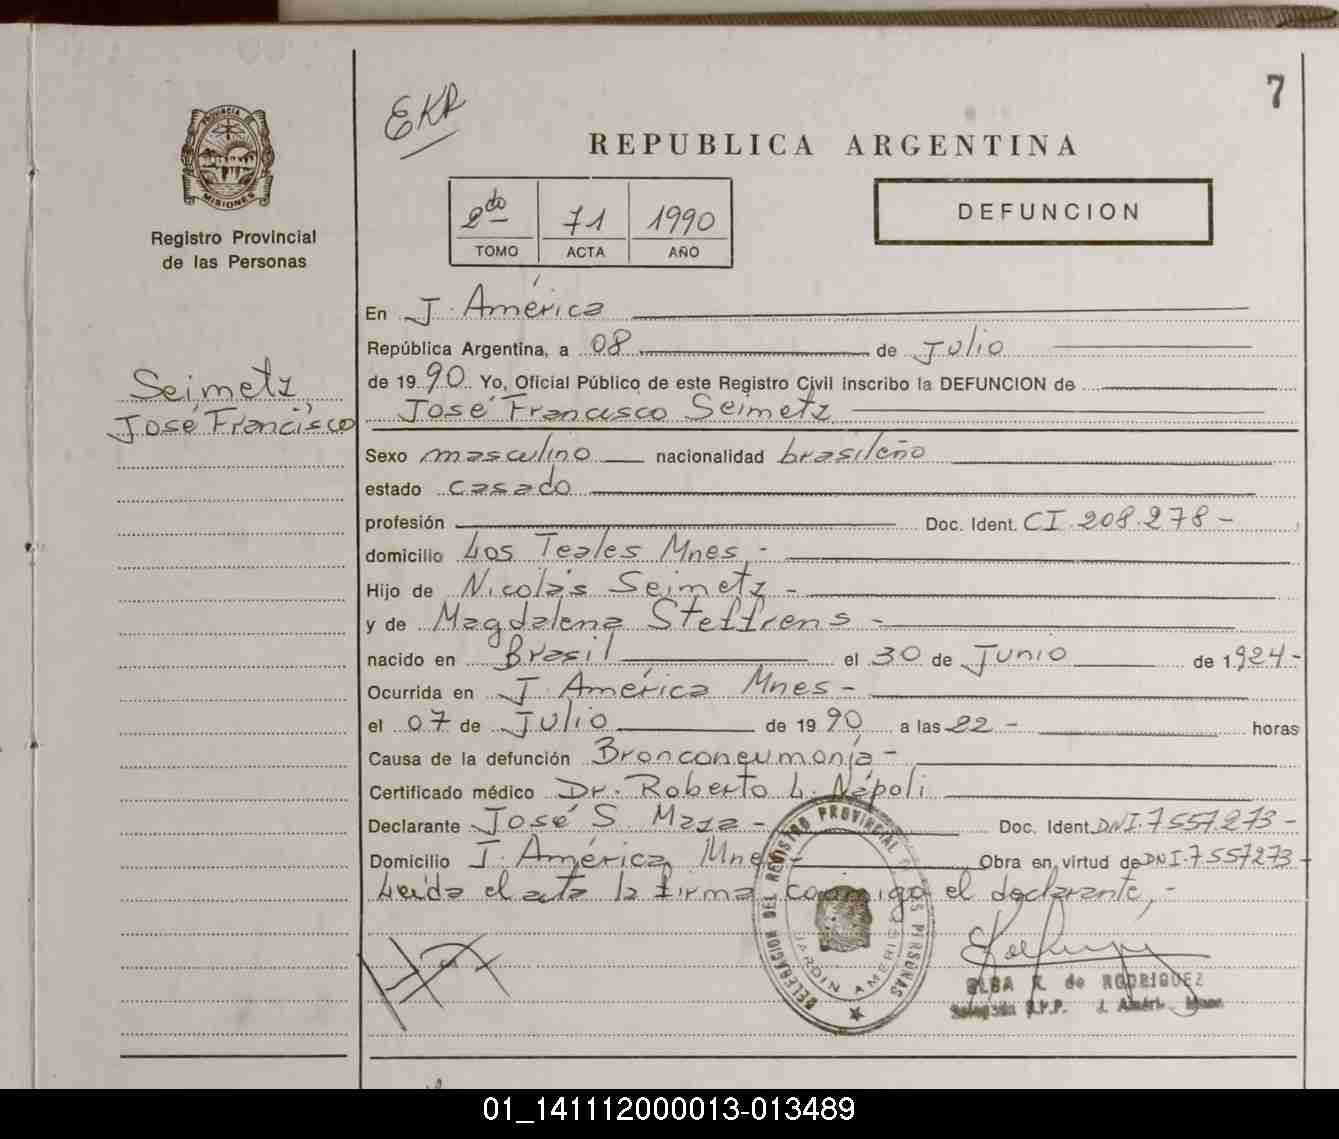 7
EKR
PROVINCIA DE
MISIONES
Registro Provincial
de las Personas
REPUBLICA ARGENTINA
2do 71 1990
TOMO ACTA AÑO
DEFUNCION
Seimetz,
José Francisco
En J. América
República Argentina, a 08 de Julio
de 1990 Yo, Oficial Público de este Registro Civil inscribo la DEFUNCION de
José Francisco Seimetz
Sexo masculino nacionalidad brasileño
estado casado
profesión Doc. Ident. CI. 208.278-
domicilio Los Teales Mnes.-
Hijo de Nicolás Seimetz -
y de Magdalena Steffrens -
nacido en Brasil el 30 de Junio de 1924-
Ocurrida en J. América Mnes -
el 07 de Julio de 1990 a las 22 - horas
Causa de la defunción Bronconeumonía -
Certificado médico Dr. Roberto L. Nápoli
Declarante José S. Maza - Doc. Ident. DNI. 7557.273-
Domicilio J. América, Mnes - Obra en virtud de DNI. 7557273-
Leida el acta la firma conmigo el declarante,-
DELEGACION DEL REGISTRO PROVINCIAL DE LAS PERSONAS
JARDIN AMERICA
ELBA R. de RODRIGUEZ
Delegada R.P.P. J. Améri. Mnes.
01_141112000013-013489